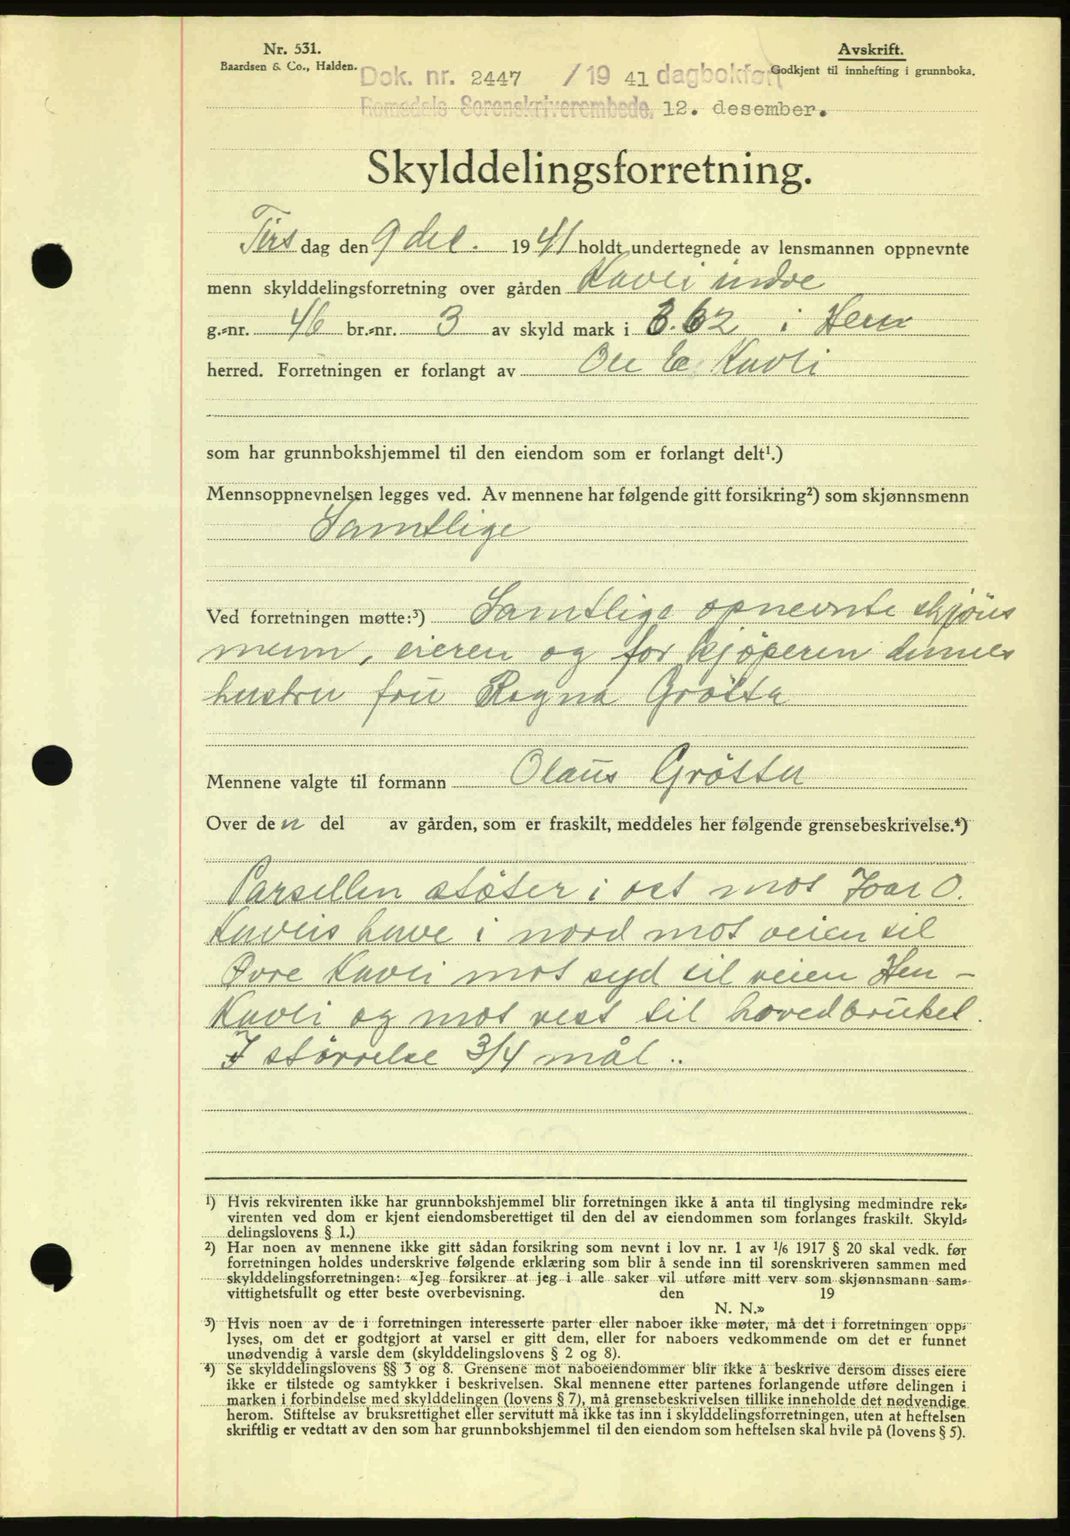 Nr. 531.
Baardsen & Co., Halden.
Avskrift.
Godkjent til innhefting i grunnboka.
Dok. nr. 2447 /19 41 dagbokført
Romsdals Sorenskriverembede, 12. desember.
Skylddelingsforretning.
Tirs dag den 9 des. 19 41 holdt undertegnede av lensmannen oppnevnte
menn skylddelingsforretning over gården Kavli indre
g.-nr. 46 br.-nr. 3 av skyld mark i 3.62 i Hen
herred. Forretningen er forlangt av Ole E. Kavli
som har grunnbokshjemmel til den eiendom som er forlangt delt¹.)
Mennsoppnevnelsen legges ved. Av mennene har følgende gitt forsikring²) som skjønnsmenn
Samtlige
Ved forretningen møtte:³) Samtlige opnevnte skjöns
menn, eieren og for kjöperen dennes
hustru fru Ragna Grötta
Mennene valgte til formann Olaus Grötta
Over den del av gården, som er fraskilt, meddeles her følgende grensebeskrivelse.⁴)
Parsellen stöter i öst mot Ivar O.
Kavlis have i nord mot veien til
Øvre Kavli mot syd til veien Hen -
Kavli og mot vest til hovedbruket.
I störrelse 3/4 mål ..
¹) Hvis rekvirenten ikke har grunnbokshjemmel blir forretningen ikke å anta til tinglysing medmindre rek-
virenten ved dom er kjent eiendomsberettiget til den del av eiendommen som forlanges fraskilt. Skyld-
delingslovens § 1.)
²) Har noen av mennene ikke gitt sådan forsikring som nevnt i lov nr. 1 av ¹/₆ 1917 § 20 skal vedk. før
forretningen holdes underskrive følgende erklæring som blir å sende inn til sorenskriveren sammen med
skylddelingsforretningen: «Jeg forsikrer at jeg i alle saker vil utføre mitt verv som skjønnsmann sam-
vittighetsfullt og etter beste overbevisning. den 19
N. N.»
³) Hvis noen av de i forretningen interesserte parter eller naboer ikke møter, må det i forretningen opp-
lyses, om det er godtgjort at varsel er gitt dem, eller for naboers vedkommende om det er funnet
unødvendig å varsle dem (skylddelingslovens § 2 og 8).
⁴) Se skylddelingslovens §§ 3 og 8. Grensene mot naboeiendommer blir ikke å beskrive dersom disses eiere
ikke er tilstede og samtykker i beskrivelsen. Skal mennene etter partenes forlangende utføre delingen i
marken i forbindelse med skylddelingen (lovens § 7), må grensebeskrivelsen tillike inneholde det nødvendige
herom. Stiftelse av bruksrettighet eller servitutt må ikke tas inn i skylddelingsforretningen, uten at heftelsen
skriftlig er vedtatt av den som har grunnbokshjemmel til den eiendom som heftelsen skal hvile på (lovens § 5).